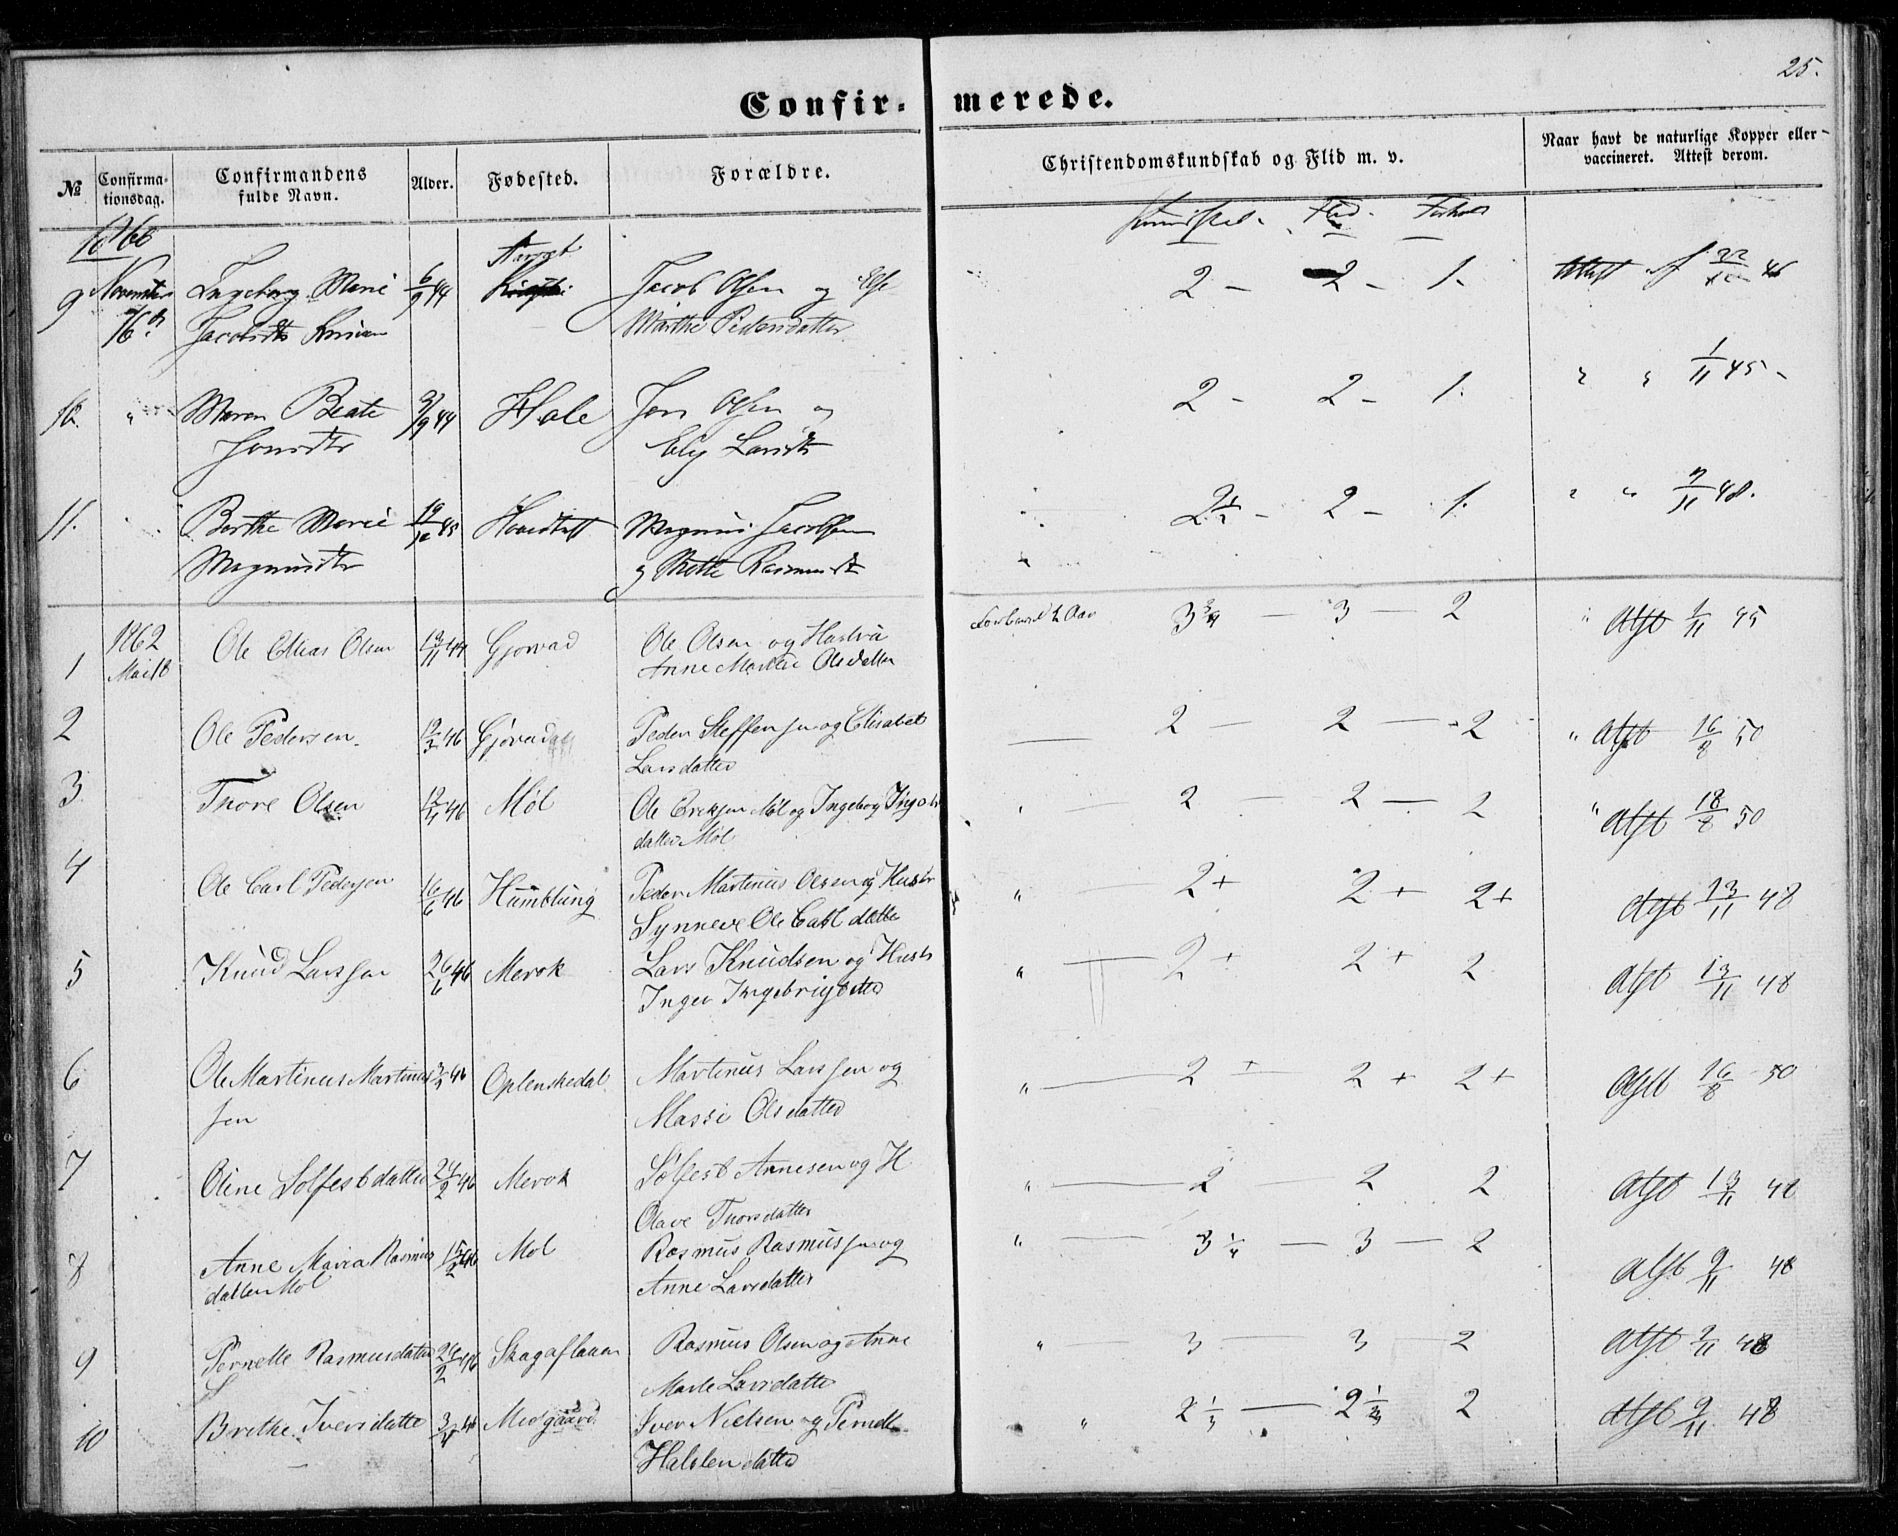 25.
Confir-merede.
No
Confirma-tionsdag.
Confirmandens fulde Navn.
Alder.
Fødested.
Forældre.
Christendomskundskab og Flid m. v.
Naar havt de naturlige Kopper eller vaccineret. Attest derom.
Kundskab. Flid. Forhold
9 Novembr Ingeborg Marie 6/9 44 Jacob Olsen og 2 - 2 - 1. Attest af 22/10 46
16de Jacobsdtr Marthe Pedersdatter
10. " Maren Beate 44 Hole Jon Olsen og 2 - 2 - 1. " " 1/11 45 -
Jonsdtr Larsdtr
11. Berthe Marie 45 Magnus Jacobsen 2 1/2 - 2 - 1. " " 7/11 48.
Magnusdtr og Mette Rasmusdtr
1862
1 Mai 18 Ole Elias Olsen 13/11 44 Gjørvad Ole Olsen og Hustru 3 3/4 — 3 — 2 " Atst 1/11 45
Anne Martha Olsdatter
2 Ole Pedersen. 12/3 46 Peder Steffensen og Elisabet 2 — 2 — 2 " Atst 16/8 50
Larsdatter
3 Thore Olsen 46 Møl Ole Eriksen Møl og Ingeborg 2 — 2 — 2 " Atst 18/8 50
datter Møl
4 Ole Carl Pedersen 16/6 46 Humblung Peder Martinus Olsen og Hustr " 2+ 2+ 2+ Atst 13/11 48
Synneve Ole Carl datter
5 Knud Larssen 26/6 46 Merok Lars Knudsen og Hustr " — 2+ 2+ 2 Atst 13/11 48
Inger Ingebrigtdatter
6 Ole Martinus Martinus 46 Oplenskedal Martinus Larssen og " — 2+ 2+ 2+ Atst 16/8 50
sen Massi Olsdatter
7 Oline Solfestdatter 24/2 46 Merok Solfest Arnesen og H " — 2 — 2 2 Atst 13/11 48
Olave Thorsdatter
8 Anne Maria Rasmus 15/2 46 Mol Rasmus Rasmussen og " — 3 1/4 — 3 — 2 Atst 9/11 48
datter Mol Anne Larsdatter
9 Pernelle Rasmusdatter 26/2 46 Skagaflaam Rasmus Olsen og Anne " — 3 — 3 — 2 Atst 9/11 48
Marte Larsdatter
10 Brethe Iversdatter Midgaard Iver Nielsen og Pernelle " 2 1/3 — 2 1/3 2 Atst 9/11 48
Halstendatter